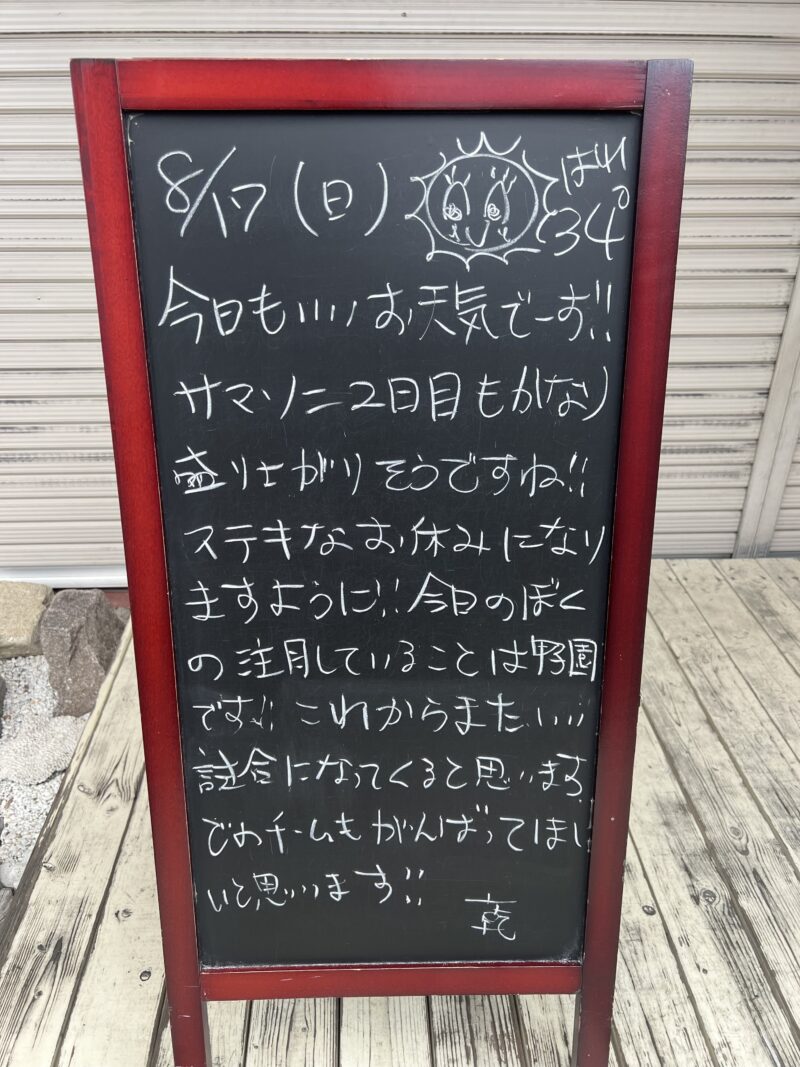 8/17(日) はれ 34°
今日もいいお天気でーす!!
サマソニ2日目もかなり
盛り上がりそうですね!!
ステキなお休みになり
ますように!!今日のぼく
の注目していることは野園
です!! これからまたいい
試合になってくると思います
どのチームもがんばってほし
いと思います!! 乾